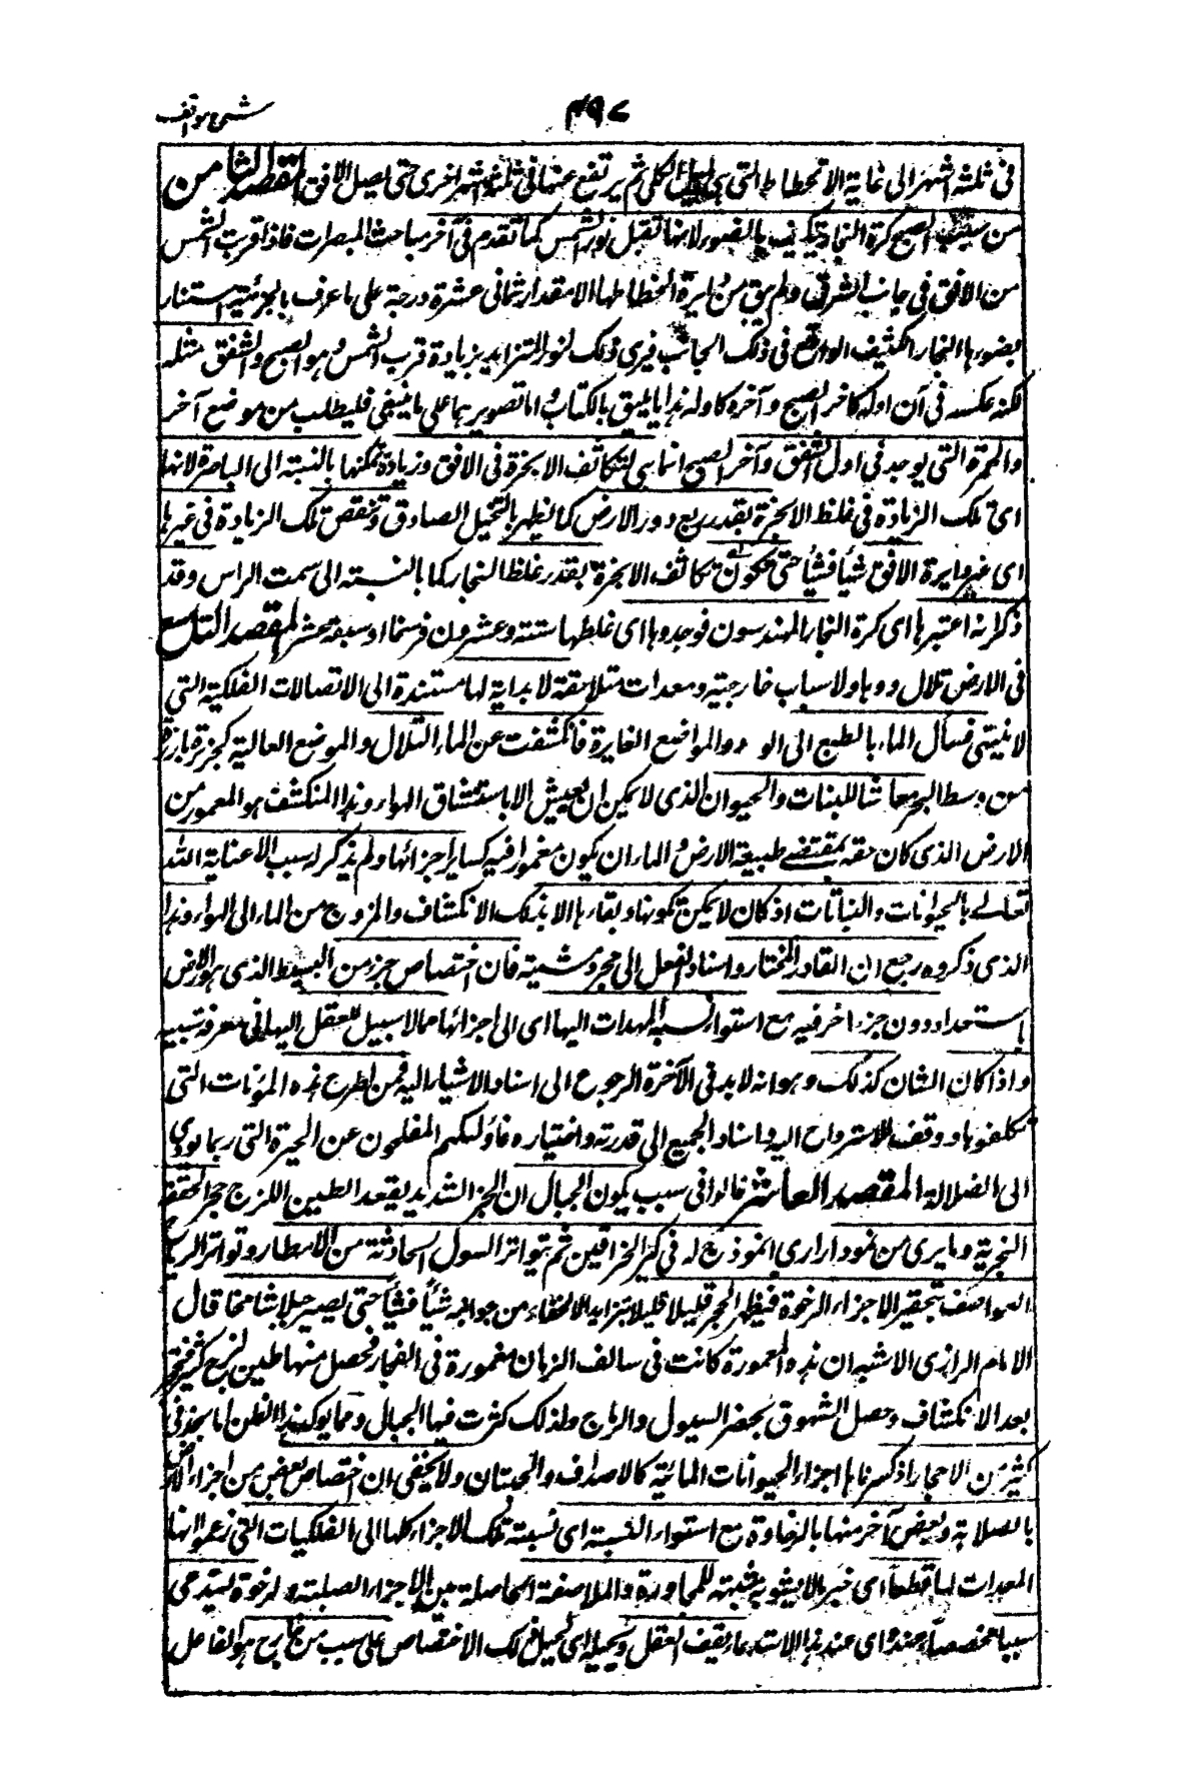 شرح مواقف
٤٩٧
فى ثلثة اشهر الى غاية الانحطاط التى هى الميل الكلى ثم يرتفع عنها فى ثلثة اشهر اخرى حتى يصل الافق المقصد الثامن
من سبب الصبح كرة البخار تتكيف بالضوء لانها تقبل نور الشمس كما تقدم فى آخر مباحث المبصرات فاذا قربت الشمس
من الافق فى جانب الشرقى ولم يبق من دايرة انحطاطها الا مقدار ثمانى عشرة درجة على ما عرف بالتجربة استنار
بضوءها البخار الكثيف الواقع فى ذلك الجانب فيرى ذلك النور المتزايد بزيادة قرب الشمس وهو الصبح والشفق مثله
لكنه عكسه فى ان اوله كاخر الصبح وآخره كاوله هذا ما يليق بالكتاب واما تصويرهما على ما ينبغى فليطلب من موضع آخر
والحمرة التى يوجد فى اول الشفق وآخر الصبح انما هى لتكاثف الابخرة فى الافق وزيادة سمكها بالنسبة الى الباصرة لانها
اى تلك الزيادة فى غلظ الابخرة بقدر ربع دور الارض كما يظهر بالتخيل الصادق وتنقص تلك الزيادة فى غيرها
اى غير دايرة الافق شيأ فشيأ حتى تكون تكاثف الابخرة بقدر غلظ البخار كما بالنسبة الى سمت الراس وقد
ذكر انه اعتبرها اى كرة البخار المهندسون فوجدوها اى غلظها ستة وعشرون فرسخا او سبعة عشر المقصد التاسع
فى الارض تلال ووهاد لاسباب خارجية ومعدات متلاحقة لا بداية لها مستندة الى الاتصالات الفلكية التى
لا تنتهى فسال الماء بالطبع الى الوهد والمواضع الغايرة فانكشفت عن الماء التلال والموضع العالية كجزيرة بارزة
من وسط البحر معاشا للنبات والحيوان الذى لا يمكن ان يعيش الا باستنشاق الهواء وهذا المنكشف هو المعمور من
الارض الذى كان حقه بمقتضى طبيعة الارض والماء ان يكون مغمورا فيه كساير اجزائها ولم يذكر له سبب الا عناية الله
تعالى بالحيوانات والنباتات اذ كان لا يمكن تكونها وبقاءها الا بذلك الانكشاف والخروج من الماء الى الهواء وهذا
الذى ذكروه رجع الى القادر المختار واسناد الفعل الى مجرد مشيته فان اختصاص جزء من البسيط الذى هو الارض
باستعداد دون جزء آخر فيه مع استواء نسبة المعدات اليها اى الى اجزائها مما لا سبيل للعقل اليها فى معرفة سببه
واذا كان الشان كذلك وهو انه لا بد فى الآخرة الرجوع الى اسناد الاشياء اليه فمن يطرح هذه المؤنات التى
تكلفوها ووقف للاسترواح اليه واسناد الجميع الى قدرته واختياره فاولئكم المفلحون عن الحيرة التى ربما يودى
الى الضلالة المقصد العاشر قالوا فى سبب تكون الجبال ان الحر الشديد يعقد الطين اللزج حجرا لتحققه
التجربة وما يرى من نمودارارى انموذج له فى كيز الخزافين ثم بتواتر السيول الحادثة من الامطار وتواتر الرياح
العواصف بتحفير الاجزاء الرخوة فيظهر الحجر قليلا قليلا بتزايد الانحفار من جوانبه شيأ فشيأ حتى يصير جبلا شامخا قال
الامام الرازى الاشبه ان هذه المعمورة كانت فى سالف الزمان مغمورة فى البحار فحصل منها طين لزج كثير فتحجر
بعد الانكشاف وحصل الشهوق بحفر السيول والرياح ولذلك كثرت فيها الجبال ومما يؤكد هذا الظن انا نجد فى
كثير من الاحجار اذ كسرناها اجزاء الحيوانات المائية كالاصداف والحيتان ولا يخفى ان اختصاص بعض من اجزاء الارض
بالصلابة وبعض آخر منها بالرخاوة مع استواء النسبة اى نسبة تلك الاجزاء كلها الى الفلكيات التى زعموا انها
المعدات لها قطعا اى خبر بالا يشوبه شبهة للمجاورة والملاصقة الحاصلة بين الاجزاء الصلبة والرخوة يستدعى
سببا مخصصا وعنده اى عند هذا الاستدعاء يقف العقل ويحيله اى يحيل ذلك الاختصاص على سبب من خارج هو الفاعل